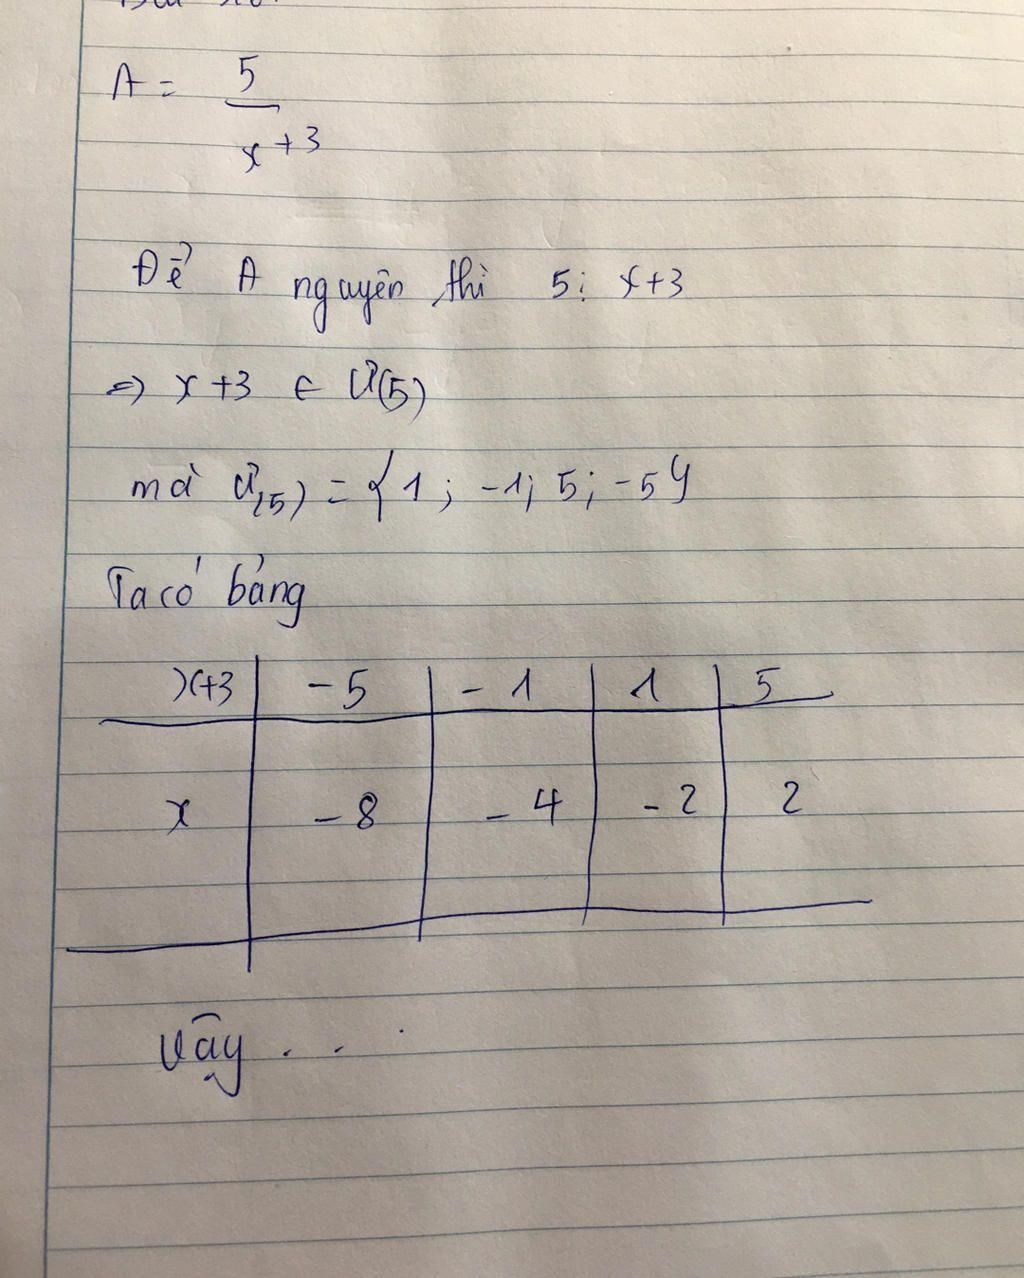 A = 5
x+3
Để A nguyên thì 5⋮ x+3
=> x+3 ∈ Ư(5)
mà Ư(5) = {1; -1; 5; -5}
Ta có bảng
x+3 -5 -1 1 5
x -8 -4 -2 2
Vậy . . .